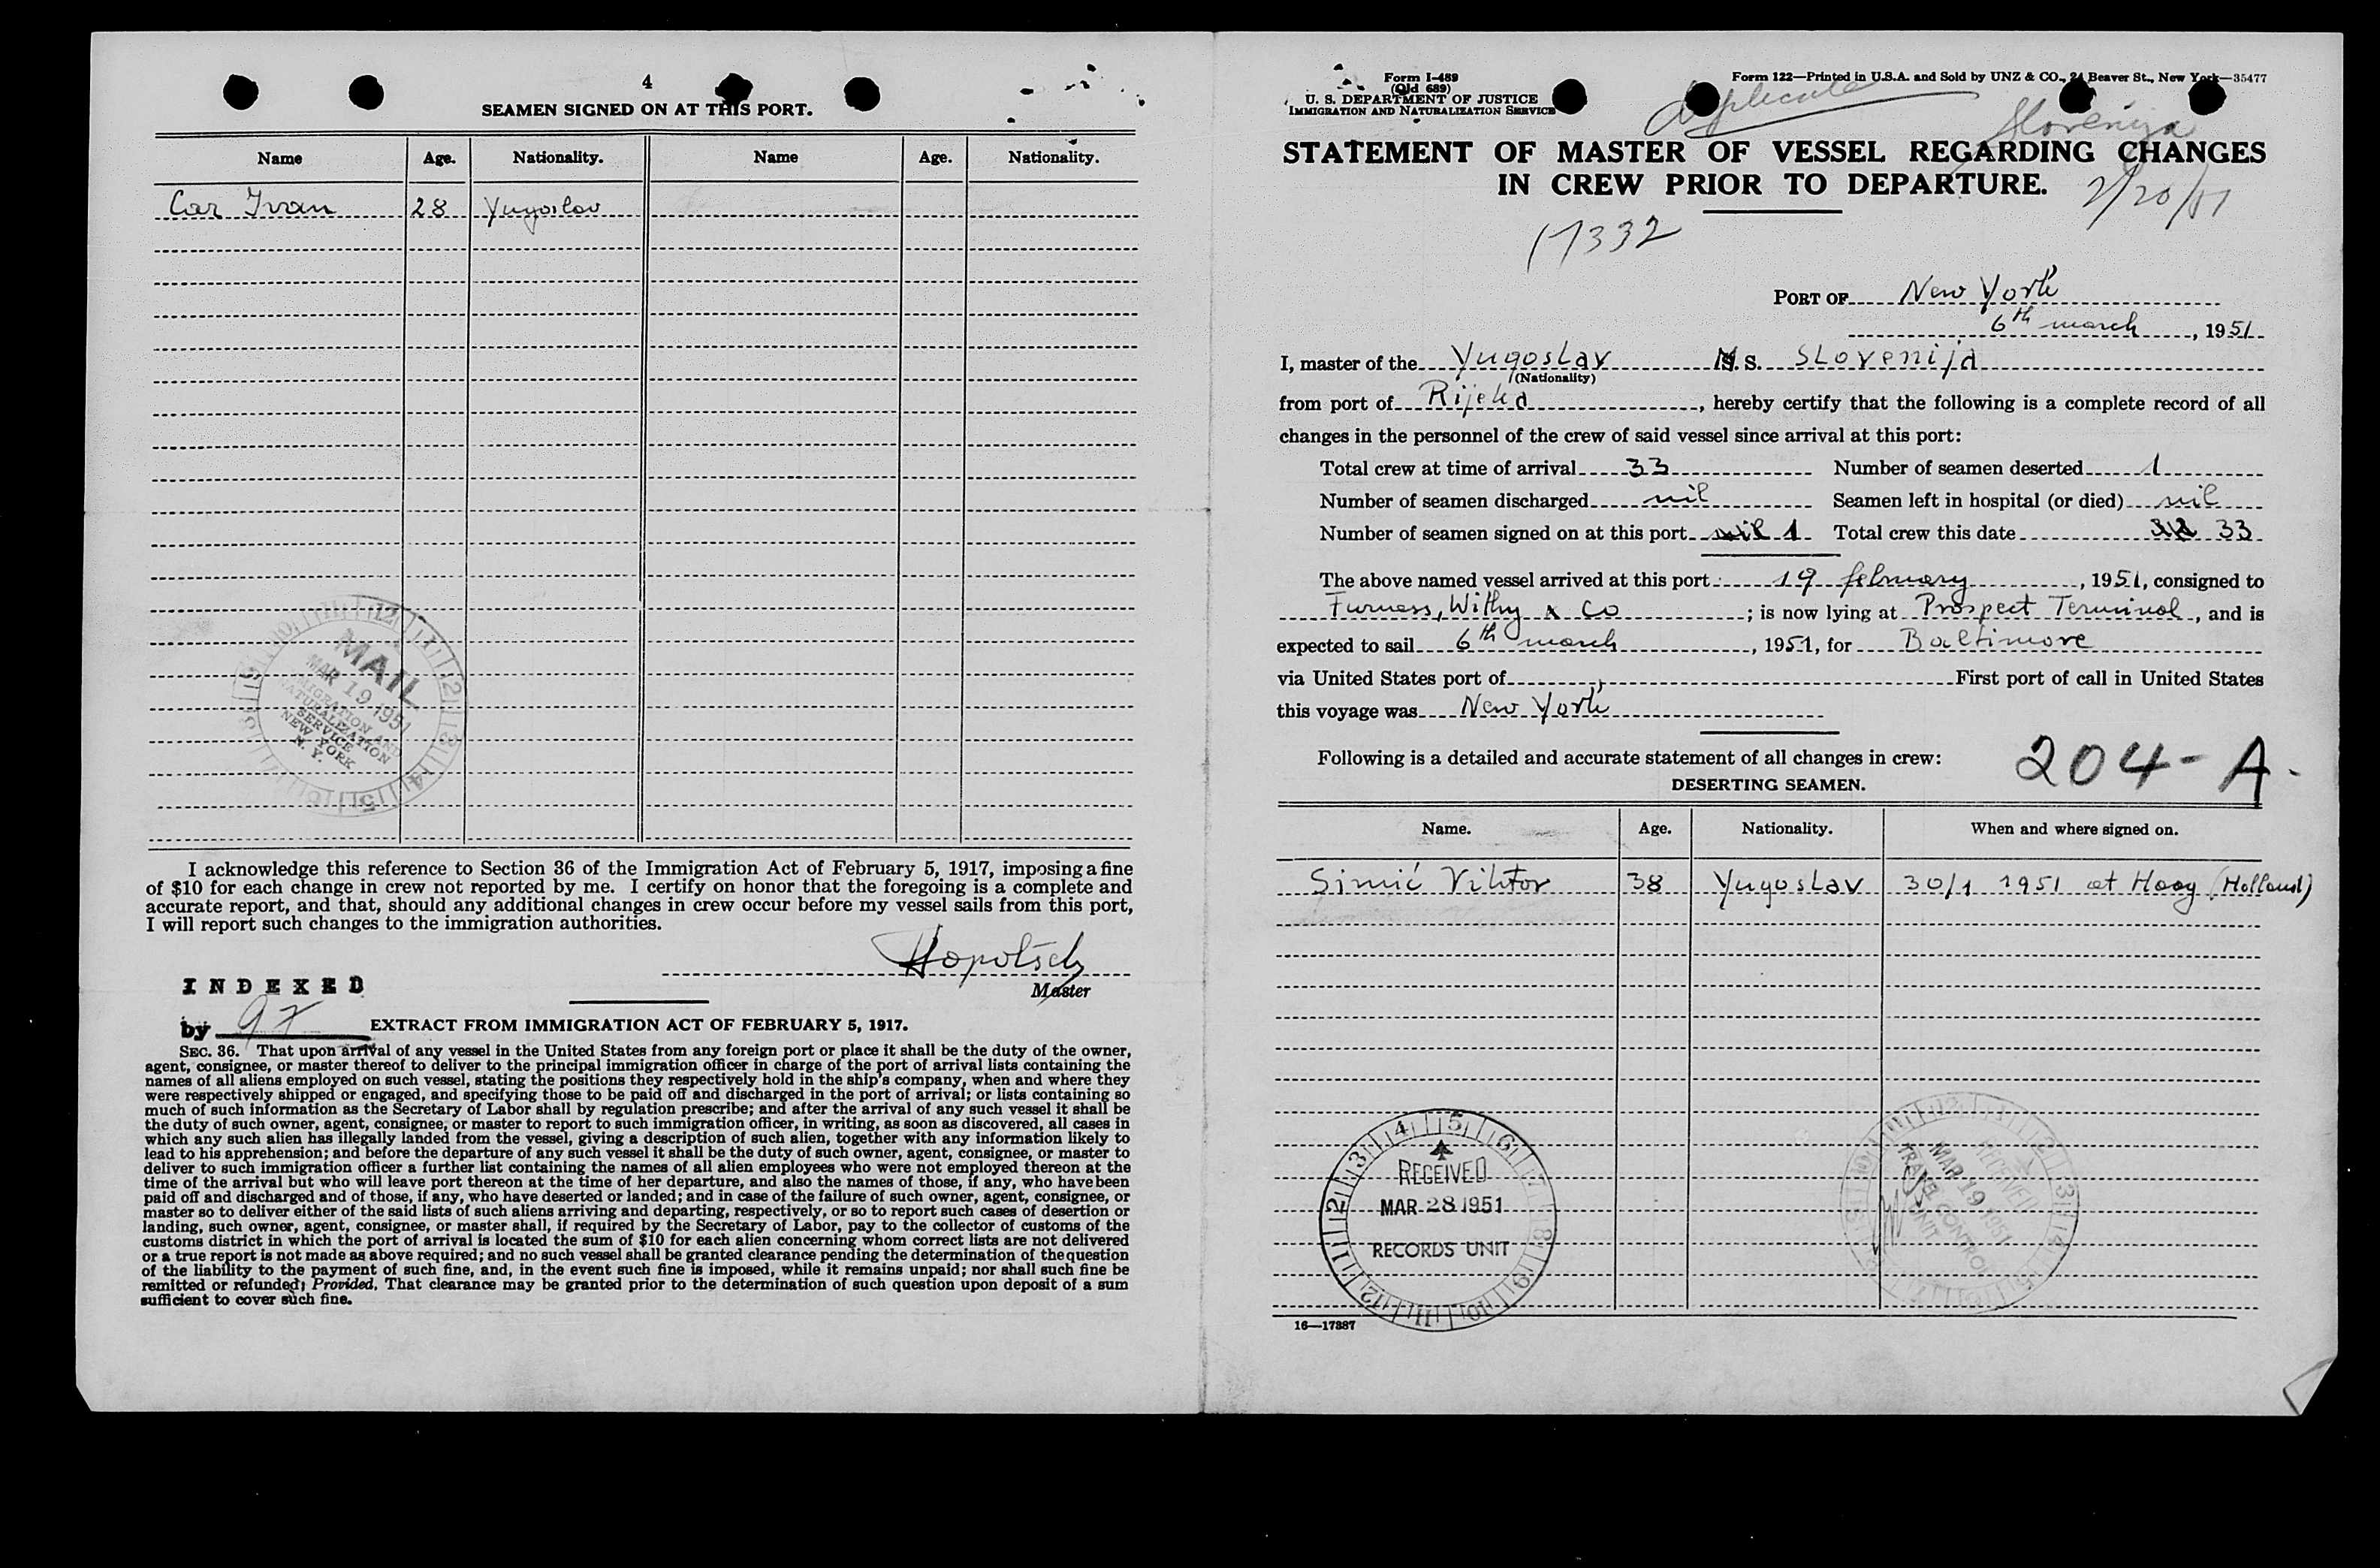 4
SEAMEN SIGNED ON AT THIS PORT.
Name Age. Nationality. Name Age. Nationality.
Car Ivan 28 Yugoslav
MAIL
MAR 19 1951
IMMIGRATION AND
NATURALIZATION
SERVICE
NEW YORK
N. Y.
I acknowledge this reference to Section 36 of the Immigration Act of February 5, 1917, imposing a fine
of $10 for each change in crew not reported by me. I certify on honor that the foregoing is a complete and
accurate report, and that, should any additional changes in crew occur before my vessel sails from this port,
I will report such changes to the immigration authorities.
Master
INDEXED
by 97
EXTRACT FROM IMMIGRATION ACT OF FEBRUARY 5, 1917.
SEC. 36. That upon arrival of any vessel in the United States from any foreign port or place it shall be the duty of the owner,
agent, consignee, or master thereof to deliver to the principal immigration officer in charge of the port of arrival lists containing the
names of all aliens employed on such vessel, stating the positions they respectively hold in the ship's company, when and where they
were respectively shipped or engaged, and specifying those to be paid off and discharged in the port of arrival; or lists containing so
much of such information as the Secretary of Labor shall by regulation prescribe; and after the arrival of any such vessel it shall be
the duty of such owner, agent, consignee, or master to report to such immigration officer, in writing, as soon as discovered, all cases in
which any such alien has illegally landed from the vessel, giving a description of such alien, together with any information likely to
lead to his apprehension; and before the departure of any such vessel it shall be the duty of such owner, agent, consignee, or master to
deliver to such immigration officer a further list containing the names of all alien employees who were not employed thereon at the
time of the arrival but who will leave port thereon at the time of her departure, and also the names of those, if any, who have been
paid off and discharged and of those, if any, who have deserted or landed; and in case of the failure of such owner, agent, consignee, or
master so to deliver either of the said lists of such aliens arriving and departing, respectively, or so to report such cases of desertion or
landing, such owner, agent, consignee, or master shall, if required by the Secretary of Labor, pay to the collector of customs of the
customs district in which the port of arrival is located the sum of $10 for each alien concerning whom correct lists are not delivered
or a true report is not made as above required; and no such vessel shall be granted clearance pending the determination of the question
of the liability to the payment of such fine, and, in the event such fine is imposed, while it remains unpaid; nor shall such fine be
remitted or refunded; Provided, That clearance may be granted prior to the determination of such question upon deposit of a sum
sufficient to cover such fine.
Form I-489
(Old 689)
U. S. DEPARTMENT OF JUSTICE
IMMIGRATION AND NATURALIZATION SERVICE
Form 122—Printed in U.S.A. and Sold by UNZ & CO., 24 Beaver St., New York—35477
duplicate
Slovenija
STATEMENT OF MASTER OF VESSEL REGARDING CHANGES
IN CREW PRIOR TO DEPARTURE.
2/20/51
17332
PORT OF New York
6th march, 1951
I, master of the Yugoslav M.S. Slovenija
(Nationality)
from port of Rijeka, hereby certify that the following is a complete record of all
changes in the personnel of the crew of said vessel since arrival at this port:
Total crew at time of arrival 33 Number of seamen deserted 1
Number of seamen discharged nil Seamen left in hospital (or died) nil
Number of seamen signed on at this port nil 1 Total crew this date 32 33
The above named vessel arrived at this port 19 february, 1951, consigned to
Furness, Withy & Co; is now lying at Prospect Terminal, and is
expected to sail 6th march, 1951, for Baltimore
via United States port of First port of call in United States
this voyage was New York
Following is a detailed and accurate statement of all changes in crew:
204-A.
DESERTING SEAMEN.
Name. Age. Nationality. When and where signed on.
Simić Viktor 38 Yugoslav 30/1 1951 at Haag (Holland)
RECEIVED
MAR 28 1951
RECORDS UNIT
RECEIVED
MAR 19 1951
TRAVEL CONTROL
UNIT
16—17887